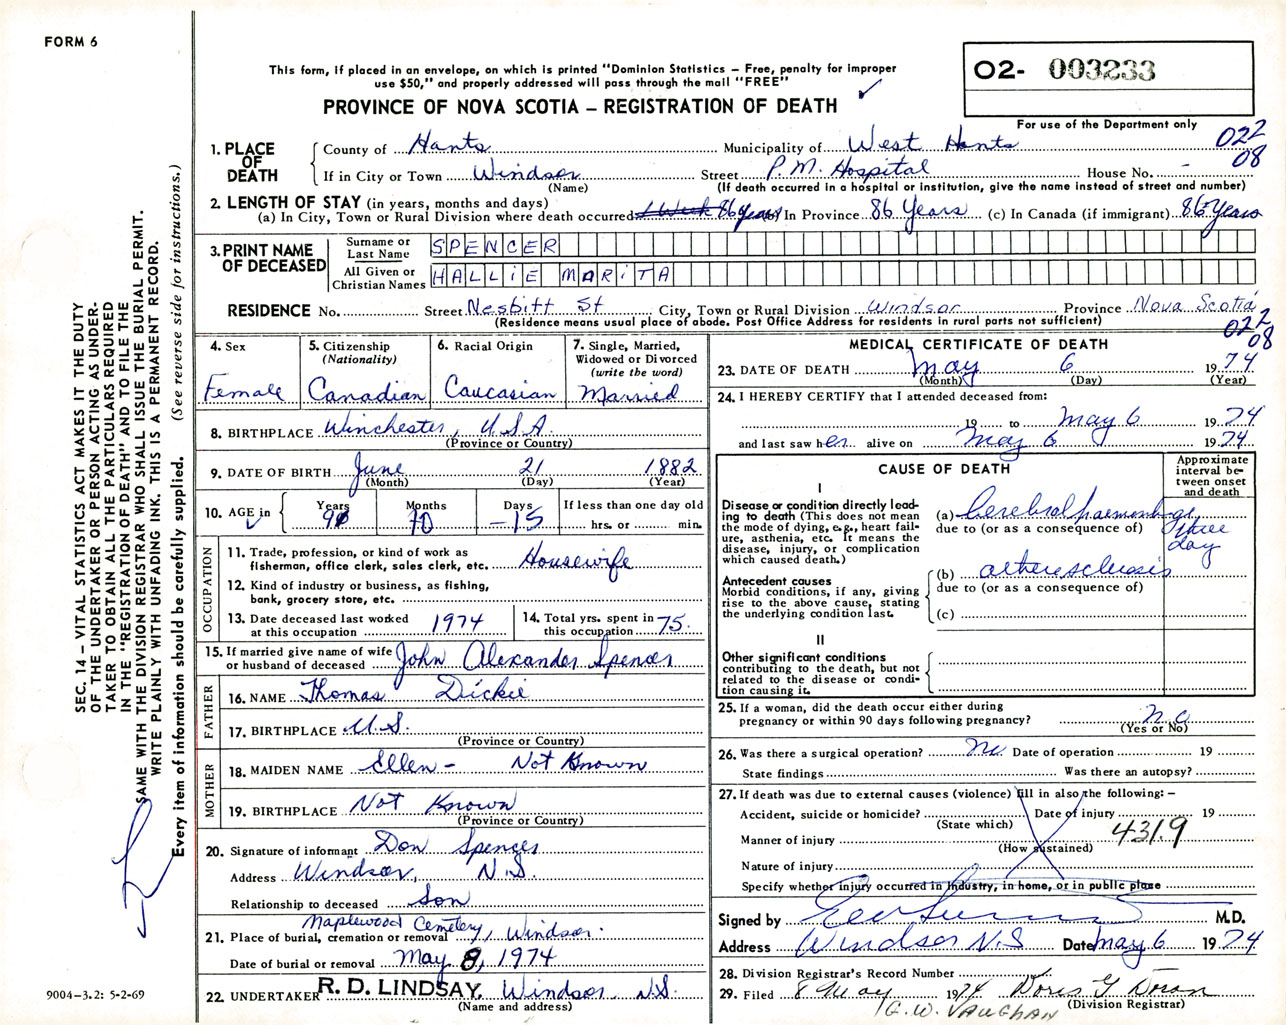 FORM 6
This form, if placed in an envelope, on which is printed "Dominion Statistics – Free, penalty for improper
use $50," and properly addressed will pass through the mail "FREE"
PROVINCE OF NOVA SCOTIA – REGISTRATION OF DEATH ✓
02- 003233
For use of the Department only
022
08
1. PLACE OF DEATH
County of Hants Municipality of West Hants
If in City or Town Windsor Street P.M. Hospital House No. -
(Name) (If death occurred in a hospital or institution, give the name instead of street and number)
2. LENGTH OF STAY (in years, months and days)
(a) In City, Town or Rural Division where death occurred 1 Week 86 years (b) In Province 86 Years (c) In Canada (if immigrant) 86 Years
3. PRINT NAME OF DECEASED
Surname or Last Name SPENCER
All Given or Christian Names HALLIE MARITA
RESIDENCE No. Street Nesbitt St City, Town or Rural Division Windsor Province Nova Scotia
(Residence means usual place of abode. Post Office Address for residents in rural parts not sufficient)
022
08
4. Sex Female
5. Citizenship (Nationality) Canadian
6. Racial Origin Caucasian
7. Single, Married, Widowed or Divorced (write the word) Married
8. BIRTHPLACE Winchester, U.S.A.
(Province or Country)
9. DATE OF BIRTH June 21 1882
(Month) (Day) (Year)
10. AGE in ✓ Years 91 Months 10 Days -15 If less than one day old
hrs. or min.
OCCUPATION
11. Trade, profession, or kind of work as fisherman, office clerk, sales clerk, etc. Housewife
12. Kind of industry or business, as fishing, bank, grocery store, etc.
13. Date deceased last worked at this occupation 1974
14. Total yrs. spent in this occupation 75.
15. If married give name of wife or husband of deceased John Alexander Spencer
FATHER
16. NAME Thomas Dickie
17. BIRTHPLACE U.S.
(Province or Country)
MOTHER
18. MAIDEN NAME Ellen - Not Known
19. BIRTHPLACE Not Known
(Province or Country)
20. Signature of informant Don Spencer
Address Windsor, N.S.
Relationship to deceased Son
21. Place of burial, cremation or removal Maplewood Cemetery, Windsor.
Date of burial or removal May 8, 1974
22. UNDERTAKER R. D. LINDSAY, Windsor, N.S.
(Name and address)
MEDICAL CERTIFICATE OF DEATH
23. DATE OF DEATH May 6 1974
(Month) (Day) (Year)
24. I HEREBY CERTIFY that I attended deceased from:
19 to May 6 1974
and last saw her alive on May 6 1974
CAUSE OF DEATH
Approximate interval between onset and death
I
Disease or condition directly leading to death (This does not mean the mode of dying, e.g., heart failure, asthenia, etc. It means the disease, injury, or complication which caused death.)
(a) Cerebral haemorrhage three day
due to (or as a consequence of)
Antecedent causes
Morbid conditions, if any, giving rise to the above cause, stating the underlying condition last.
(b) atherosclerosis
due to (or as a consequence of)
(c)
II
Other significant conditions
contributing to the death, but not related to the disease or condition causing it.
25. If a woman, did the death occur either during pregnancy or within 90 days following pregnancy? no
(Yes or No)
26. Was there a surgical operation? No Date of operation 19
State findings Was there an autopsy?
27. If death was due to external causes (violence) fill in also the following: –
Accident, suicide or homicide? Date of injury 19
(State which)
Manner of injury 431.9
(How sustained)
Nature of injury
Specify whether injury occurred in industry, in home, or in public place
Signed by M.D.
Address Windsor N.S Date May 6 1974
28. Division Registrar's Record Number
29. Filed 8 May 1974 Doris G Doran
(Division Registrar)
/G.W. VAUGHAN
SEC. 14 – VITAL STATISTICS ACT MAKES IT THE DUTY
OF THE UNDERTAKER OR PERSON ACTING AS UNDER-
TAKER TO OBTAIN ALL THE PARTICULARS REQUIRED
IN THE "REGISTRATION OF DEATH" AND TO FILE THE
SAME WITH THE DIVISION REGISTRAR WHO SHALL ISSUE THE BURIAL PERMIT.
WRITE PLAINLY WITH UNFADING INK. THIS IS A PERMANENT RECORD.
Every item of information should be carefully supplied. (See reverse side for instructions.)
9004–3.2: 5-2-69